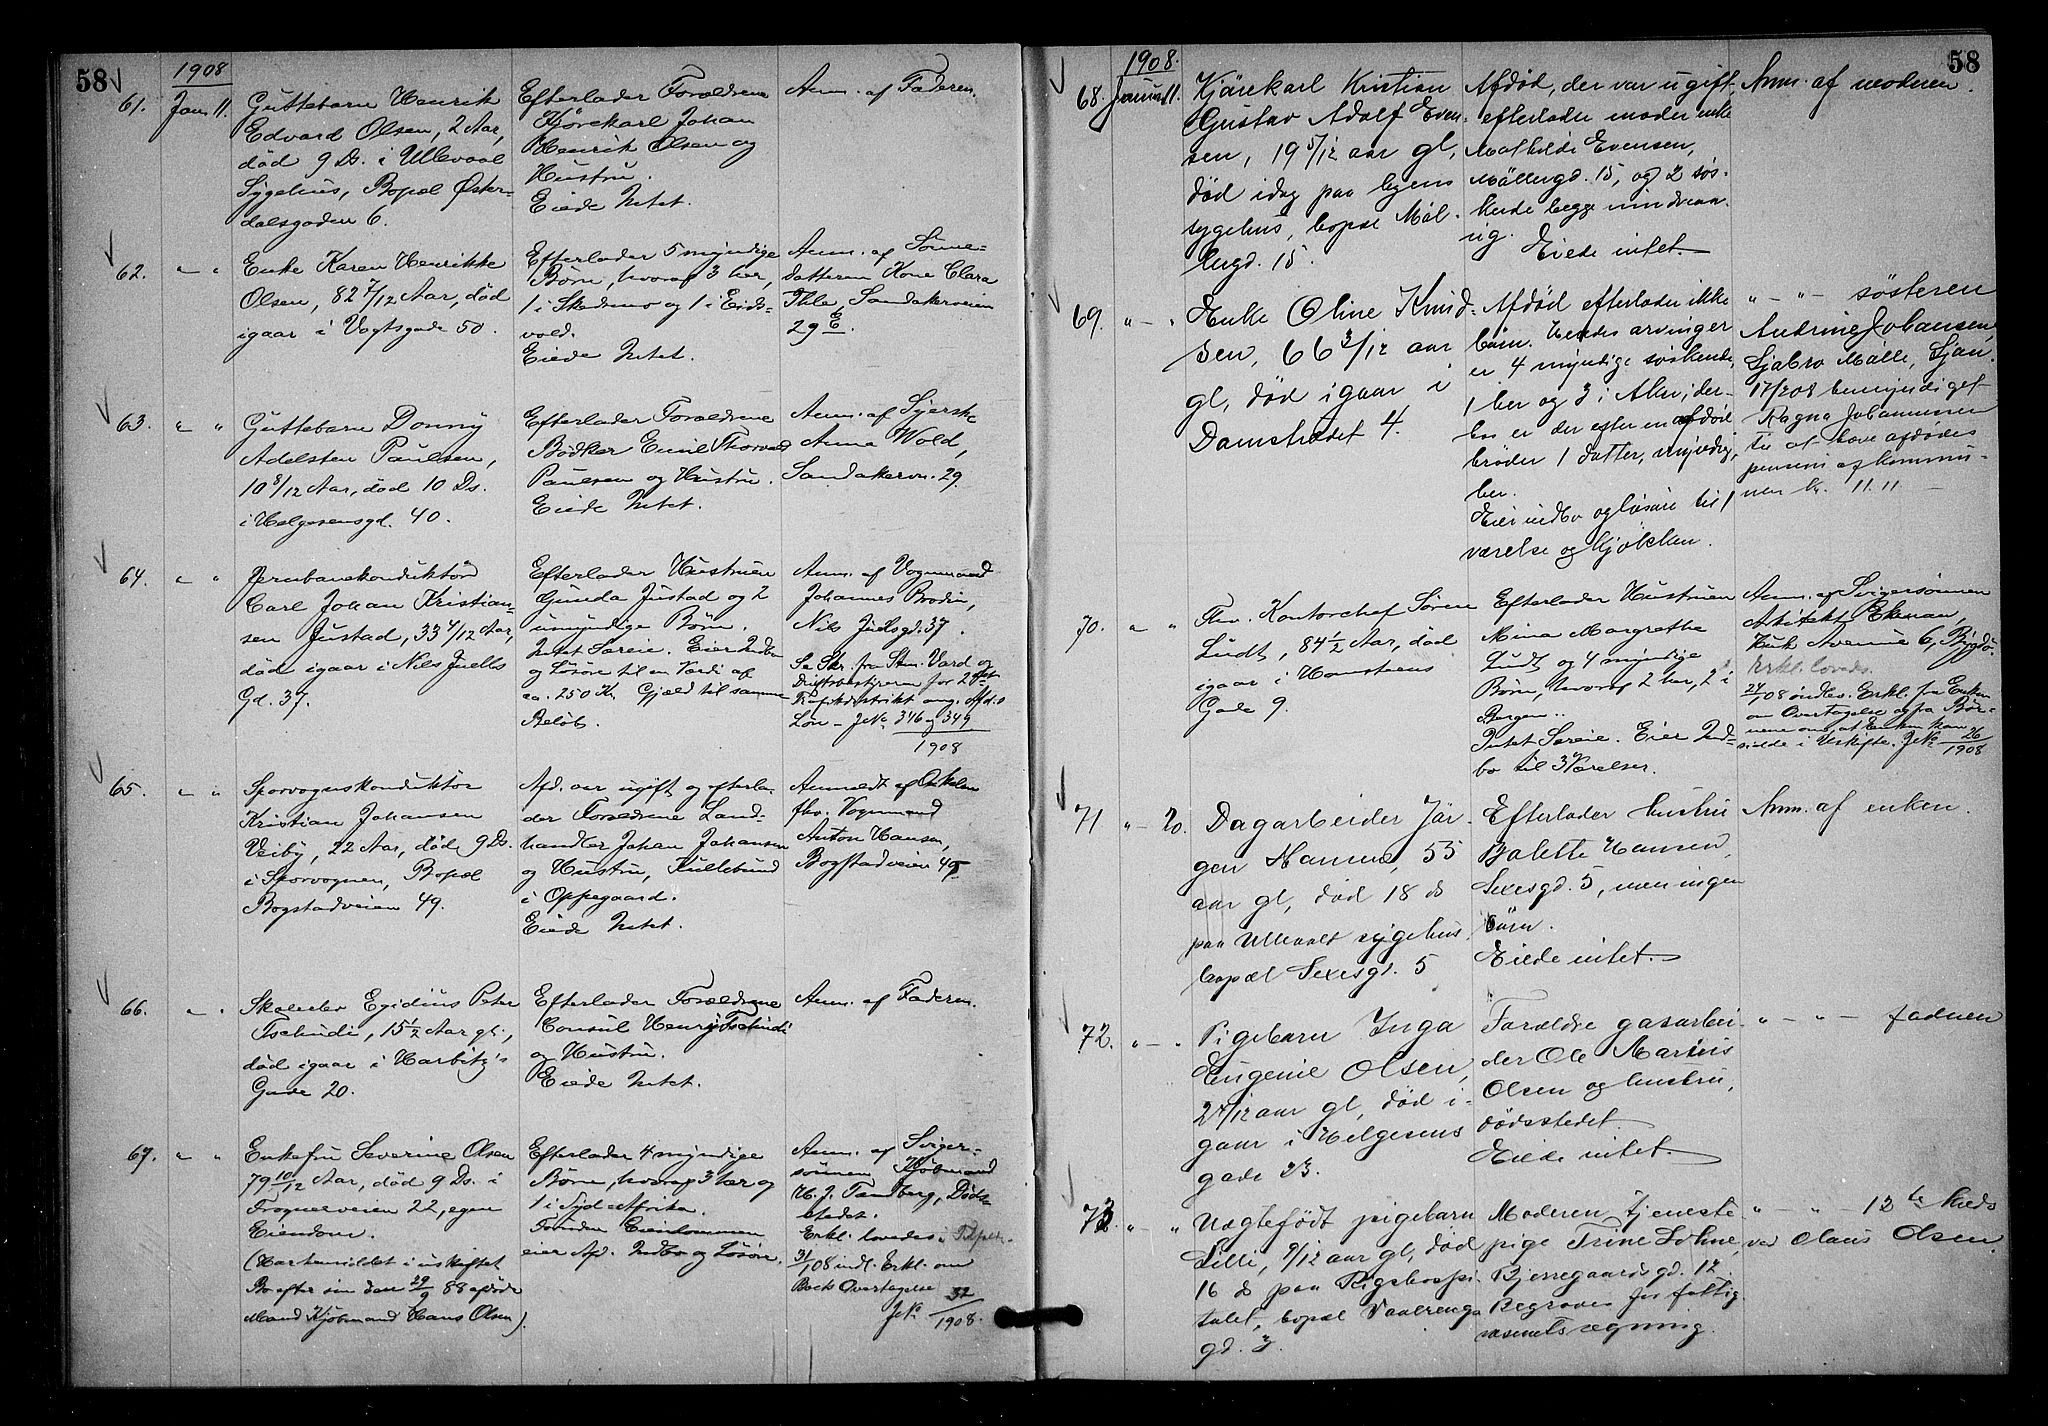 58
1908
61. Jan. 11.
Guttebarn Henrik
Edvard Olsen, 2 Aar,
död 9 Ds. i Ullevaal
Sygehus, Bopæl Øster-
dalsgaden 6.
Efterlader Forældrene
Kjørekarl Johan
Henrik Olsen og
Hustru.
Eiede Intet.
Anm. af Faderen.
62. " "
Enke Karen Henrikke
Olsen, 82 7/12 Aar, död
igaar i Vogtsgade 50.
Efterlader 5 myndige
Børn, hvoraf 3 her,
1 i Skedsmo og 1 i Eids-
vold.
Eiede Intet.
Anm. af Sønne-
datteren Kone Clara
Ihle, Sandakerveien
29 E.
63. " "
Guttebarn Donny
Adelsten Paulsen,
10 8/12 Aar, död 10 Ds.
i Helgesensgd. 40.
Efterlader Forældrene
Bødker Emil Thorvald
Paulsen og Hustru.
Eiede Intet.
Anm. af Syerske
Anna Wold,
Sandakerv. 29.
64. " "
Jernbanekonduktör
Carl Johan Kristian-
sen Justad, 33 4/12 Aar,
död igaar i Niels Juells
Gd. 37.
Efterlader Hustruen
Gunda Justad og 2
umyndige Børn.
Intet Særeie. Eier Indbo
og Løsøre til en Værdi af
ca. 250 Kr. Gjæld til samme
Beløb.
Anm. af Vognmand
Johannes Brodin,
Nils Juelsgd. 37.
Se Skr. fra Stm. Vard og
Driftsbestyreren for 2det
Trafikdistrikt ang. Afd.s
Løn - JNo 346 og 349
1908
65. " "
Sporvognskonduktör
Kristian Johansen
Veiby, 22 Aar, död 9 Ds.
i Sporvognen, Bopæl
Bogstadveien 49.
Afd. var ugift og efterla-
der Forældrene Land-
handler Johan Johansen
og Hustru, Kullebund
i Oppegaard.
Eiede Intet.
Anmeldt af Onkelen
fhv. Vognmand
Anton Hansen,
Bogstadveien 49.
66. " "
Skoleelev Egidius Peter
Tschudi, 15 1/2 Aar gl.,
död igaar i Harbitz's
Gade 20.
Efterlader Forældrene
Consul Henry Tschudi
og Hustru.
Eiede Intet.
Anm. af Faderen.
67. " "
Enkefru Severine Olsen
79 10/12 Aar, död 9 Ds. i
Frognerveien 22, egen
Eiendom.
(Har hensiddet i uskiftet
Bo efter sin den 29/9 88 afdøde
Mand Kjøbmand Hans Olsen).
Efterlader 4 myndige
Børn, hvoraf 3 her og
1 i Sydafrika.
Foruden Eiendommen
eier Afd. Indbo og Løsøre.
Anm. af Sviger-
sönnen Kjøbmand
H. J. Tandberg, Døds-
stedet.
Erkl. lovedes i
31/1 08 indl. Erkl. om
Boets Overtagelse
JNo 32/1908.
58
1908.
68. Januar 11.
Kjörekarl Kristian
Gustav Adolf Even-
sen, 19 5/12 aar gl,
död idag paa byens
sygehus, bopæl Möl-
lergd. 15.
Afdöd, der var ugift,
efterlader moder enke
Mathilde Evensen,
Möllergd. 15, og 2 søs-
kende begge mindreaa-
rig.
Eiede intet.
Anm. af moderen.
69. " — "
Enke Oline Knud-
sen, 66 3/12 aar
gl, død igaar i
Damstrædet 4.
Afdöd efterlader ikke
börn. Hendes arvinger
er 4 myndige søskende,
1 her og 3 i Aker; der-
hos er der efter en afdöd
bröder 1 datter, myndig,
her.
Eier indbo og løsøre til 1
værelse og kjökken.
" — " — söster
Andrine Johansen,
Ljabro Mölle, Ljan.
17/2 08 bemyndiget
Ragna Johannesen
til at hæve afdødes
pension af kommu-
nen kr. 11.11
70. " "
Fhv. Kontorchef Sören
Ludt, 84 1/2 Aar, död
igaar i Homstens
Gade 9.
Efterlader Hustruen
Mina Margrethe
Ludt og 4 myndige
Børn, hvoraf 2 her, 2 i
Bergen.
Intet Særeie. Eier Ind-
bo til 3 Værelser.
Anm. af Svigersønnen
Arkitekt Ekman,
Huk Avenue 6, Bygdö.
Erkl. lovedes.
24/1 08 Erkl. fra Enken
om Overtagelse og fra Bör-
nene om, at Enken kan
sidde i Uskifte. JNo 26/1908
71 " — 20.
Dagarbeider Jör-
gen Hansen, 55
aar gl, död 18 ds
paa Ullevaal sygehus,
bopæl Sexesgd. 5
Efterlader hustru
Bolette Hansen,
Sexesgd. 5, men ingen
börn.
Eiede intet.
Anm. af enken.
72. " — "
Pigebarn Inga
Eugenie Olsen,
2 4/12 aar gl, död i-
gaar i Helgesens
gade 23.
Forældre gasarbei-
der Ole Marius
Olsen og hustru,
dödsstedet.
Eiede intet.
" — " — faderen
73. " — "
Uægtefödt pigebarn
Lilli, 9/12 aar gl, död
16 ds paa Rigshospi-
talet, bopæl Vaalerenga
gd. 3.
Moderen tjeneste-
pige Trine Lohne,
Bjerregaards gd. 12.
Begraves for fattig-
væsenets regning.
" — " — 12te kreds
ved Olaus Olsen.